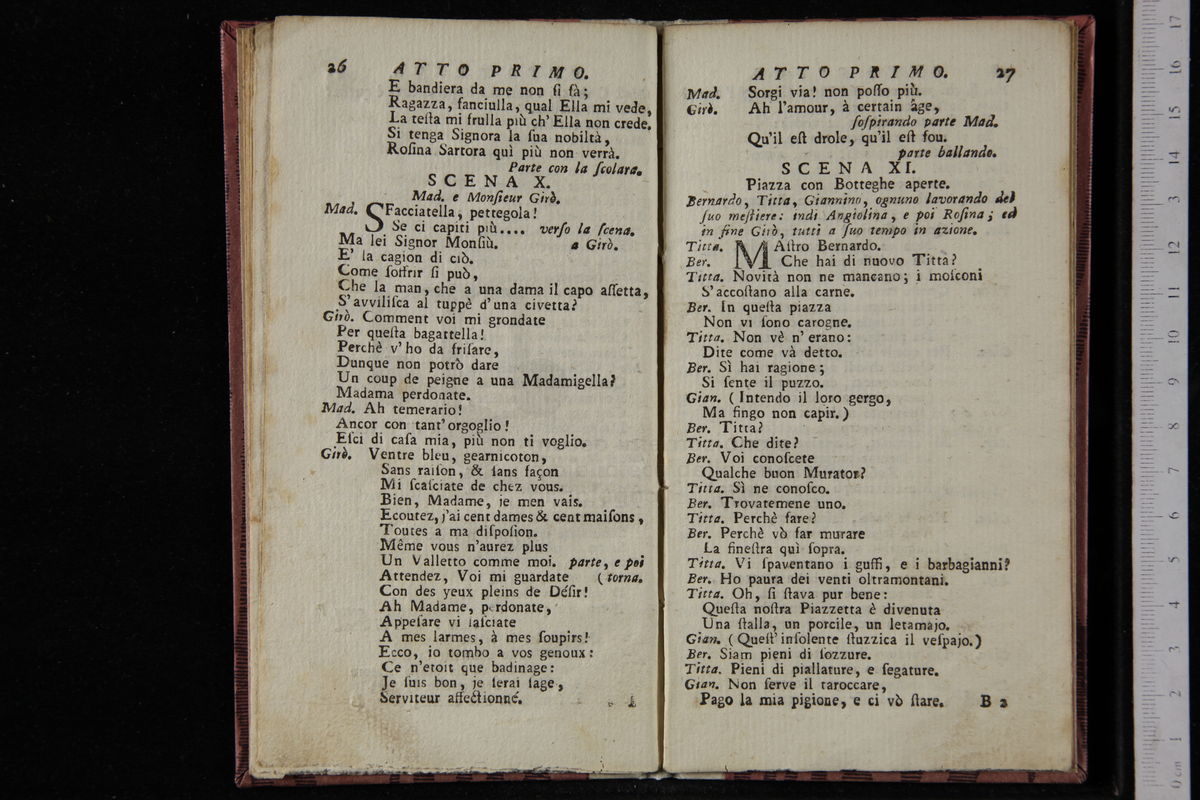 26 ATTO PRIMO.
E bandiera da me non ſi fà;
Ragazza, fanciulla, qual Ella mi vede,
La teſta mi frulla più ch'Ella non crede.
Si tenga Signora la ſua nobiltà,
Roſina Sartora quì più non verrà.
Parte con la ſcolara.
SCENA X.
Mad. e Monſieur Girò.
Mad. SFacciatella, pettegola!
Se ci capiti più.... verſo la ſcena.
Ma lei Signor Monſiù. a Girò.
E' la cagion di ciò.
Come ſoffrir ſi può,
Che la man, che a una dama il capo aſſetta,
S'avviliſca al tuppè d'una civetta?
Girò. Comment voi mi grondate
Per queſta bagattella!
Perchè v'ho da friſare,
Dunque non potrò dare
Un coup de peigne a una Madamigella?
Madama perdonate.
Mad. Ah temerario!
Ancor con tant'orgoglio!
Eſci di caſa mia, più non ti voglio.
Girò. Ventre bleu, gearnicoton,
Sans raiſon, & ſans façon
Mi ſcaſciate de chez vous.
Bien, Madame, je men vais.
Ecoutez, j'ai cent dames & cent maiſons,
Toutes a ma diſpoſion.
Même vous n'aurez plus
Un Valletto comme moi. parte, e poi
Attendez, Voi mi guardate (torna.
Con des yeux pleins de Déſir!
Ah Madame, perdonate,
Appeſare vi laſciate
A mes larmes, à mes ſoupirs!
Ecco, io tombo a vos genoux:
Ce n'etoit que badinage:
Je ſuis bon, je ſerai ſage,
Serviteur affectionné.
ATTO PRIMO. 27
Mad. Sorgi via! non poſſo più.
Girò. Ah l'amour, à certain âge,
ſoſpirando parte Mad.
Qu'il eſt drole, qu'il eſt fou.
parte ballando.
SCENA XI.
Piazza con Botteghe aperte.
Bernardo, Titta, Giannino, ognuno lavorando del
ſuo meſtiere: indi Angiolina, e poi Roſina; ed
in fine Girò, tutti a ſuo tempo in azione.
Titta. MAſtro Bernardo.
Ber. Che hai di nuovo Titta?
Titta. Novità non ne mancano; i moſconi
S'accoſtano alla carne.
Ber. In queſta piazza
Non vi ſono carogne.
Titta. Non vè n'erano:
Dite come và detto.
Ber. Sì hai ragione;
Si ſente il puzzo.
Gian. (Intendo il loro gergo,
Ma fingo non capir.)
Ber. Titta?
Titta. Che dite?
Ber. Voi conoſcete
Qualche buon Murator?
Titta. Sì ne conoſco.
Ber. Trovatemene uno.
Titta. Perchè fare?
Ber. Perchè vò far murare
La fineſtra quì ſopra.
Titta. Vi ſpaventano i guffi, e i barbagianni?
Ber. Ho paura dei venti oltramontani.
Titta. Oh, ſi ſtava pur bene:
Queſta noſtra Piazzetta è divenuta
Una ſtalla, un porcile, un letamajo.
Gian. (Queſt'inſolente ſtuzzica il veſpajo.)
Ber. Siam pieni di ſozzure.
Titta. Pieni di piallature, e ſegature.
Gian. Non ſerve il taroccare,
Pago la mia pigione, e ci vò ſtare. B 2
0 cm 1 2 3 4 5 6 7 8 9 10 11 12 13 14 15 16 17